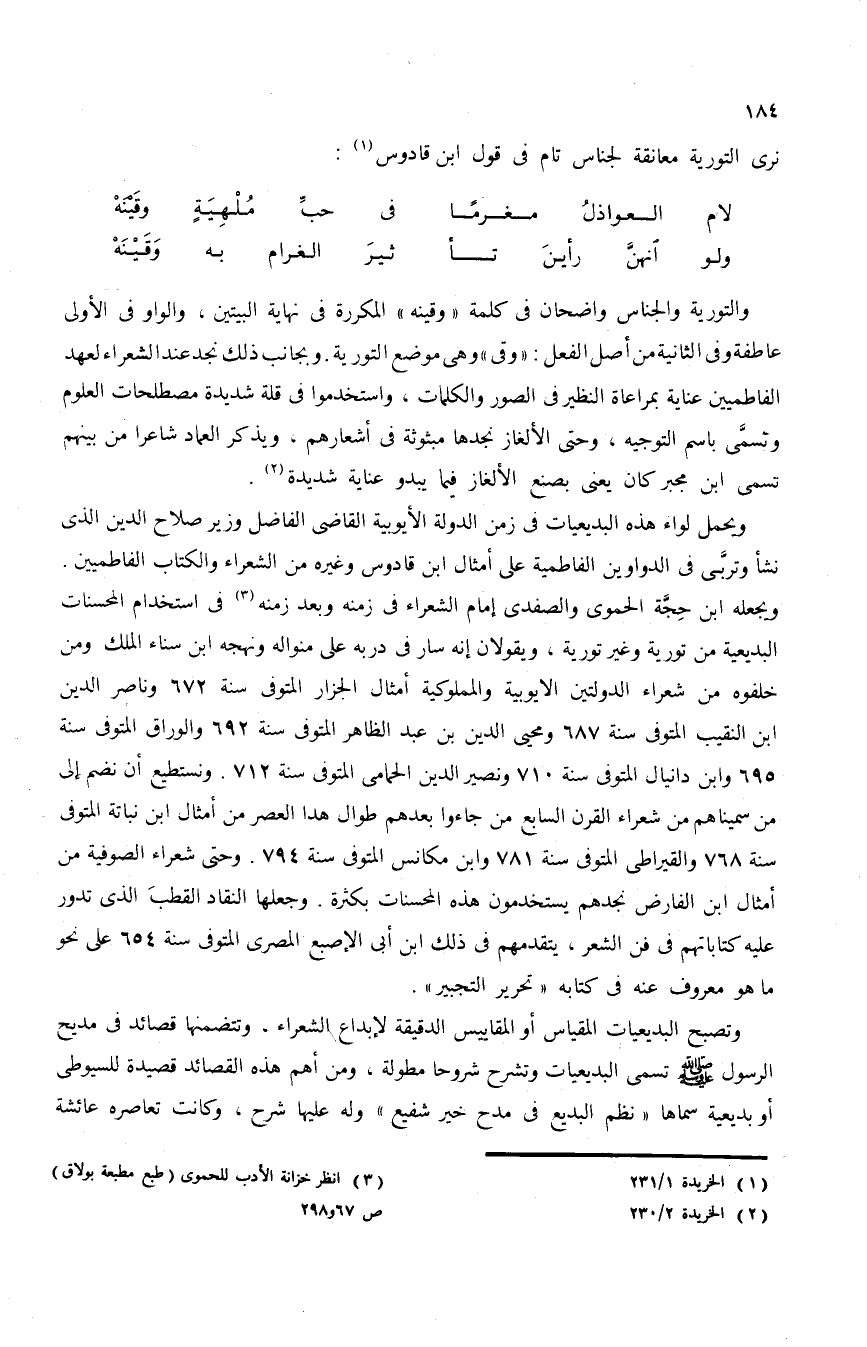 ١٨٤
نرى التورية معانقة لجناس تام فى قول ابن قادوس(١) :
لام العواذلُ مغرمًا فى حبِّ مُلْهِيَةٍ وقَيْنَهْ
ولو آنهنَّ رأينَ تأثيرَ الغرام به وَقَيْنَهْ
والتورية والجناس واضحان فى كلمة « وقينه » المكررة فى نهاية البيتين ، والواو فى الأولى
عاطفة وفى الثانية من أصل الفعل : «وقى» وهى موضع التورية . وبجانب ذلك نجد عند الشعراء لعهد
الفاطميين عناية بمراعاة النظير فى الصور والكلمات ، واستخدموا فى قلة شديدة مصطلحات العلوم
وتسمَّى باسم التوجيه ، وحتى الألغاز نجدها مبثوثة فى أشعارهم ، ويذكر العماد شاعرا من بينهم
تسمى ابن مجبر كان يعنى بصنع الألغاز فيما يبدو عناية شديدة(٢) .
ويحمل لواء هذه البديعيات فى زمن الدولة الأيوبية القاضى الفاضل وزير صلاح الدين الذى
نشأ وتربَّى فى الدواوين الفاطمية على أمثال ابن قادوس وغيره من الشعراء والكتاب الفاطميين .
ويجعله ابن حِجَّة الحموى والصفدى إمام الشعراء فى زمنه وبعد زمنه(٣) فى استخدام المحسنات
البديعية من تورية وغير تورية ، ويقولان إنه سار فى دربه على منواله ونهجه ابن سناء الملك ومن
خلفوه من شعراء الدولتين الايوبية والمملوكية أمثال الجزار المتوفى سنة ٦٧٢ وناصر الدين
ابن النقيب المتوفى سنة ٦٨٧ ومحيى الدين بن عبد الظاهر المتوفى سنة ٦٩٢ والوراق المتوفى سنة
٦٩٥ وابن دانيال المتوفى سنة ٧١٠ ونصير الدين الحمامى المتوفى سنة ٧١٢ . ونستطيع أن نضم إلى
من سميناهم من شعراء القرن السابع من جاءوا بعدهم طوال هدا العصر من أمثال ابن نباتة المتوفى
سنة ٧٦٨ والقيراطى المتوفى سنة ٧٨١ وابن مكانس المتوفى سنة ٧٩٤ . وحتى شعراء الصوفية من
أمثال ابن الفارض نجدهم يستخدمون هذه المحسنات بكثرة . وجعلها النقاد القطبَ الذى تدور
عليه كتاباتهم فى فن الشعر ، يتقدمهم فى ذلك ابن أبى الإصبع المصرى المتوفى سنة ٦٥٤ على نحو
ما هو معروف عنه فى كتابه « تحرير التجبير» .
وتصبح البديعيات المقياس أو المقاييس الدقيقة لإبداع الشعراء . وتتضمنها قصائد فى مديح
الرسول ﷺ تسمى البديعيات وتشرح شروحا مطولة ، ومن أهم هذه القصائد قصيدة للسيوطى
أو بديعية سماها « نظم البديع فى مدح خير شفيع » وله عليها شرح ، وكانت تعاصره عائشة
(١) الخريدة ٢٣١/١
(٢) الخريدة ٢٣٠/٢
(٣) انظر خزانة الأدب للحموى (طبع مطبعة بولاق)
ص ٦٧و٢٩٨